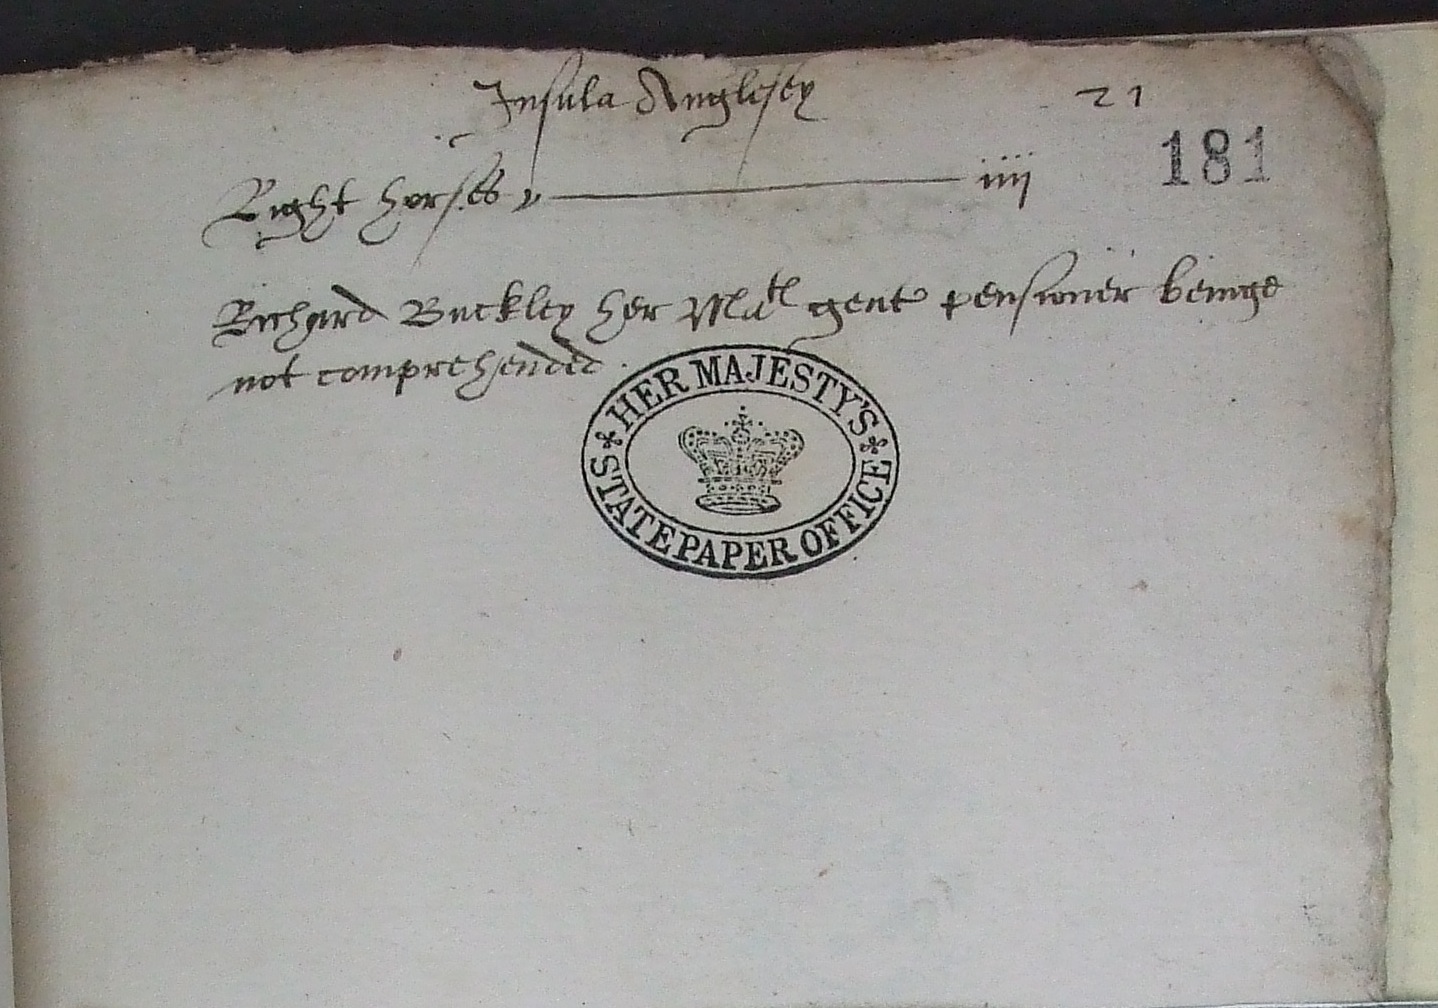 Insula Anglesey
21
181
Light horses iiij
Richard Buckley her Matꝭ gent pensioner beinge
not comprehended.
HER MAJESTY'S
STATE PAPER OFFICE